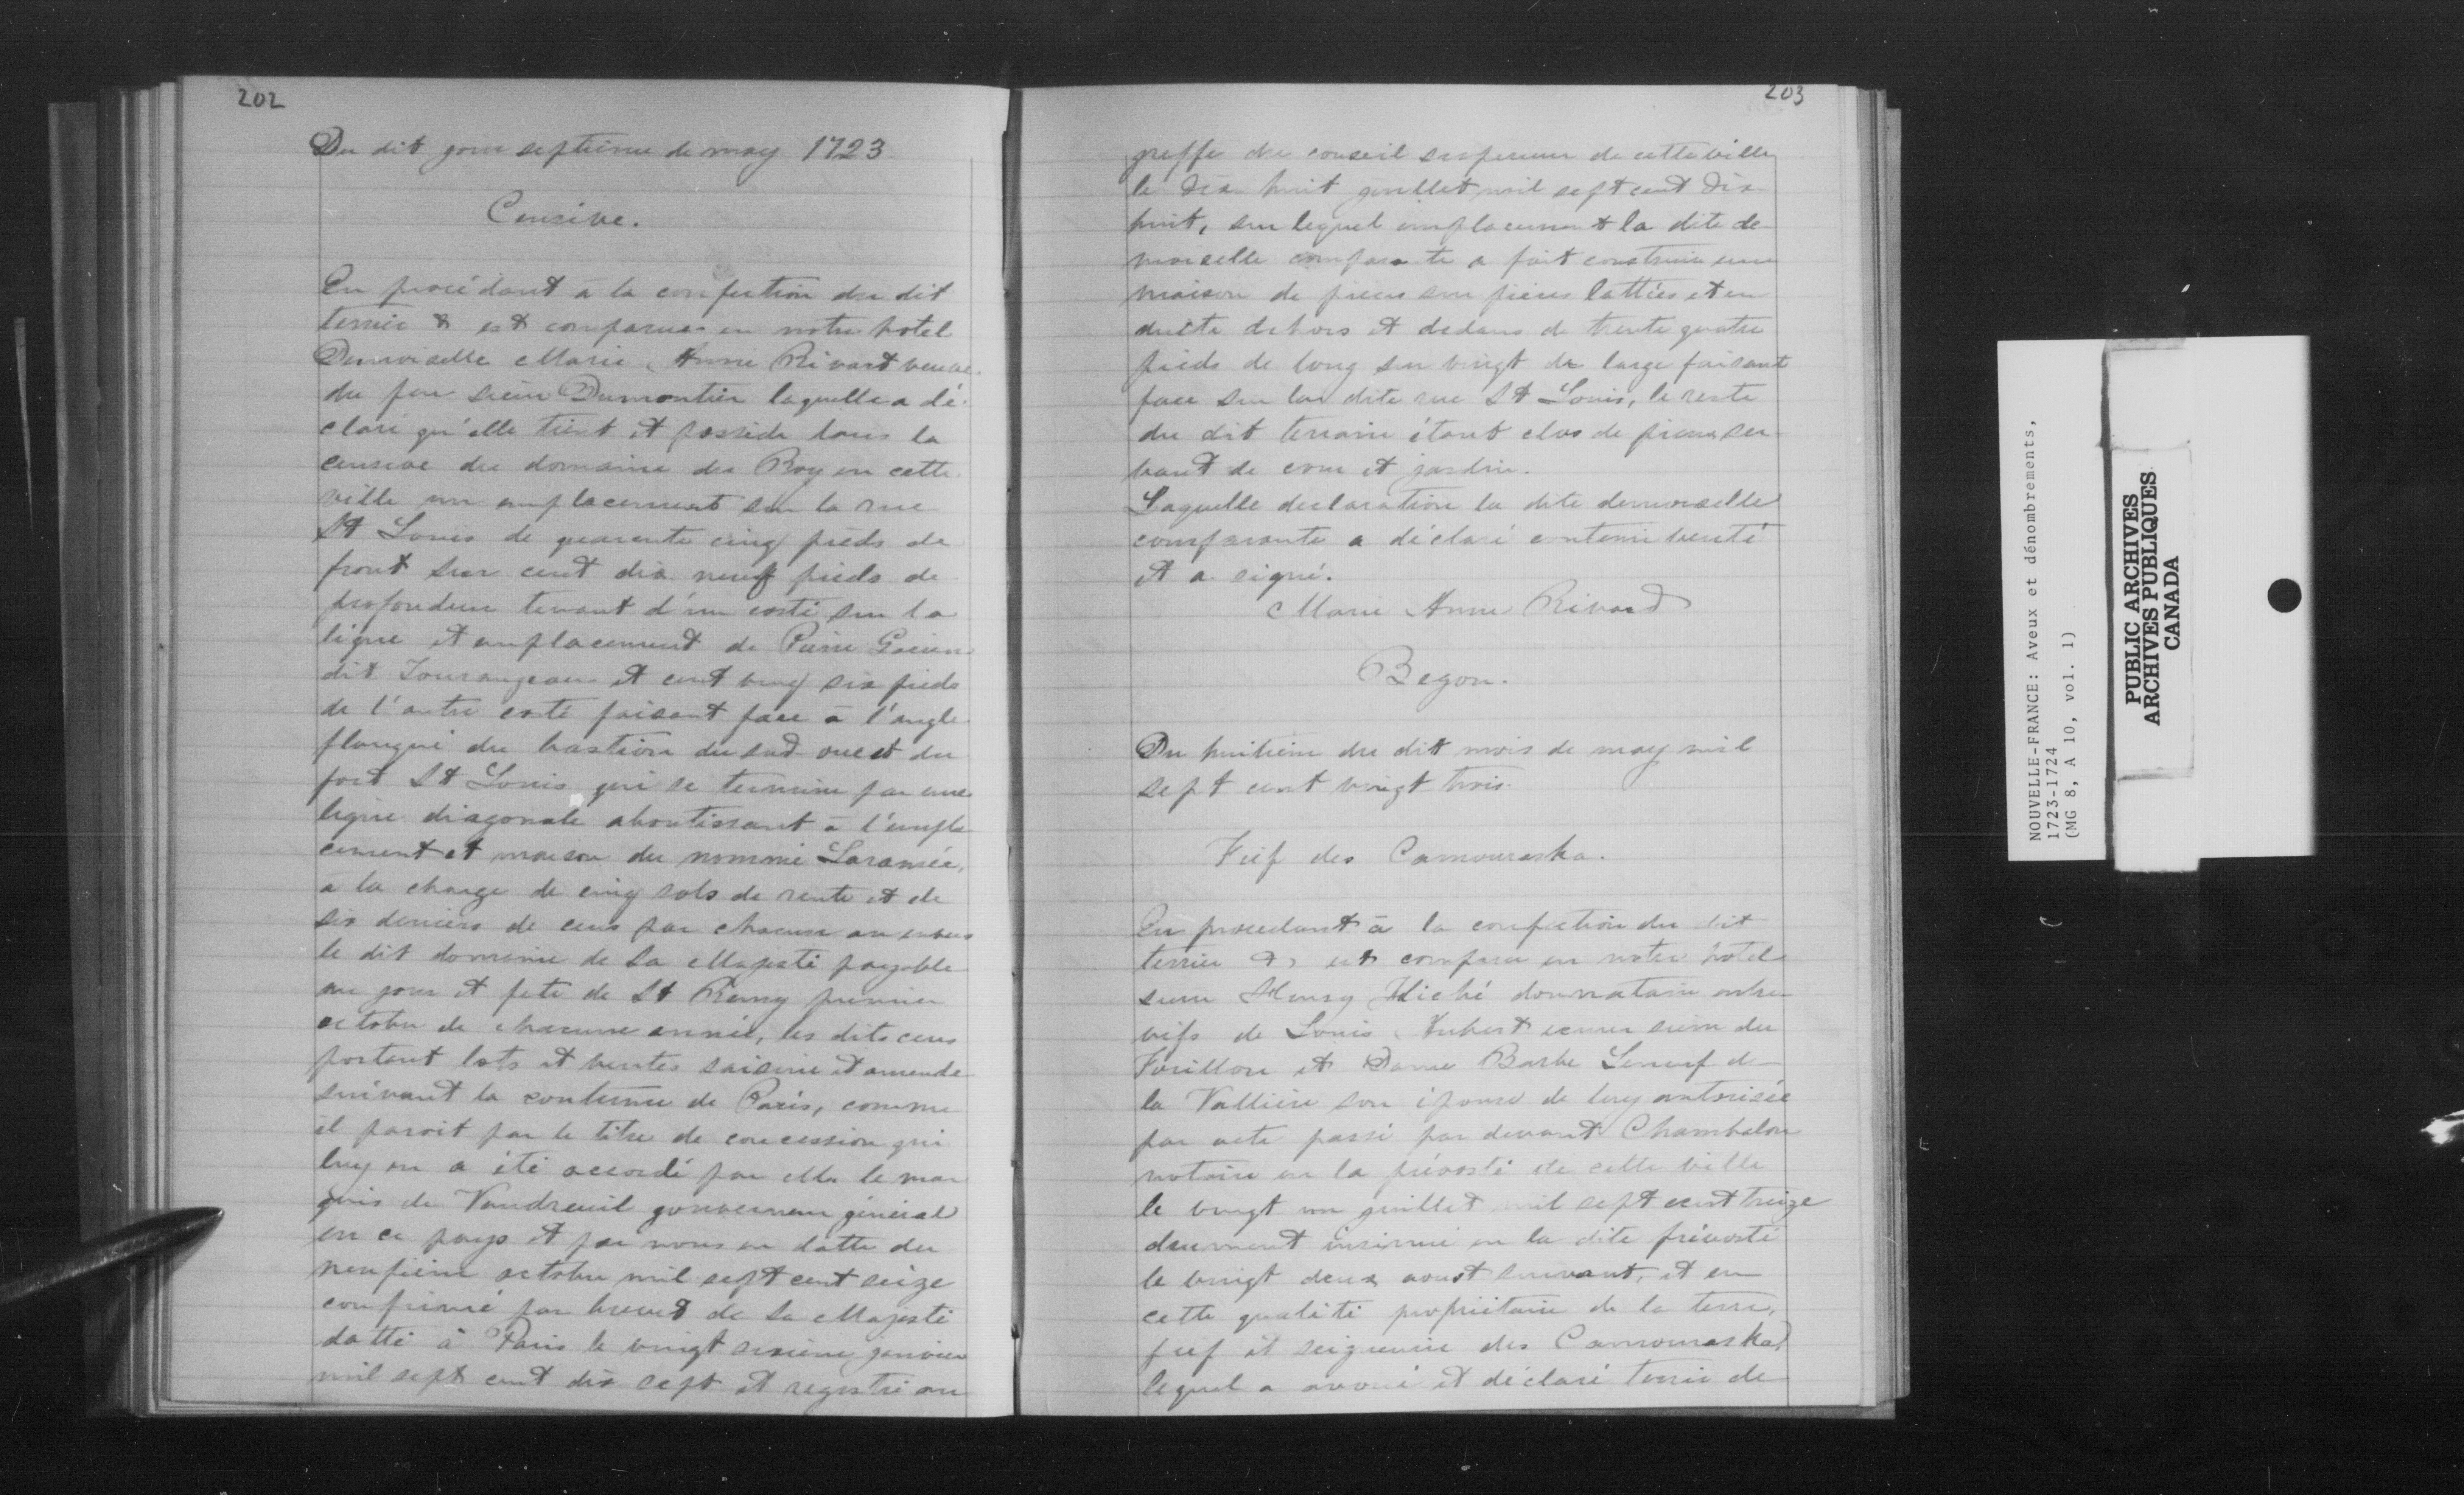 202
Du dit jour septieme de may 1723
Censive.
En procédant a la confection du dit
terrier & est comparue en notre hotel
Demoiselle Marie Anne Rivard veuve
du feu sieur Dumontier laquelle a dé-
claré qu'elle tient et possede dans la
censive du domaine du Roy en cette
ville un emplacement sur la rue
St Louis de quarente cinq pieds de
front sur cent dix neuf pieds de
profondeur tenant d'un costé sur la
ligne et emplacement de Pierre
dit Tourangeau et cent ving six pieds
de l'autre costé faisant face à l'angle
flanqué du bastion du sud ouest du
fort St Louis qui se termine par une
ligne diagonale aboutissant à l'empla
cement et maison du nommé Laramée,
a la charge de cinq sols de rente et de
six deniers de cens par chacun an envers
le dit domaine de Sa Majesté payable
au jour et fete de St Remy premier
octobre de chacune année, les dits cens
portant lots et ventes saisine et amende
suivant la coutume de Paris, comme
il paroit par le titre de concession qui
luy en a été accordé par Mr le mar
quis de Vaudreuil gouverneur général
en ce pays et par nous en datte du
neufieme octobre mil sept cent seize
confirmé par brevet de Sa Majesté
datté à Paris le vingt sixieme janvier
mil sept cent dix sept et registré au
203
greffe du conseil superieur de cette ville
le dix huit juillet mil sept cent dix
huit, sur lequel emplacement la dite de
moiselle comparante a fait construire une
maison de pieces sur pieces lattées et en
duitte dehors et dedans de trente quatre
pieds de long sur vingt de large faisant
face sur la dite rue St Louis, le reste
du dit terrain étant clos de pieux ser-
vant de cour et jardin.
Laquelle declaration la dite demoiselle
comparante a déclaré contenir verité
et a signé.
Marie Anne Rivard
Begon.
Du huitieme du dit mois de may mil
sept cent vingt trois.
Fief des Camouraska.
En procedant à la confection du dit
terrier & est comparu en notre hotel
sieur Henry Hiché donnataire entre
vifs de Louis Aubert ecuier sieur du
Forillon et Dame Barbe Leneuf de
la Vallière son épouse de luy autorisée
par acte passé par devant Chambalon
notaire en la prévosté de cette ville
le vingt un juillet mil sept cent treize
deuement insinué en la dite prévosté
le vingt deux aoust suivant, et en
cette qualité propriétaire de la terre,
fief et seigneurie des Camouraska
lequel a avoué et déclaré tenir de
NOUVELLE-FRANCE: Aveux et dénombrements,
1723-1724
(MG 8, A 10, vol. 1)
PUBLIC ARCHIVES
ARCHIVES PUBLIQUES
CANADA